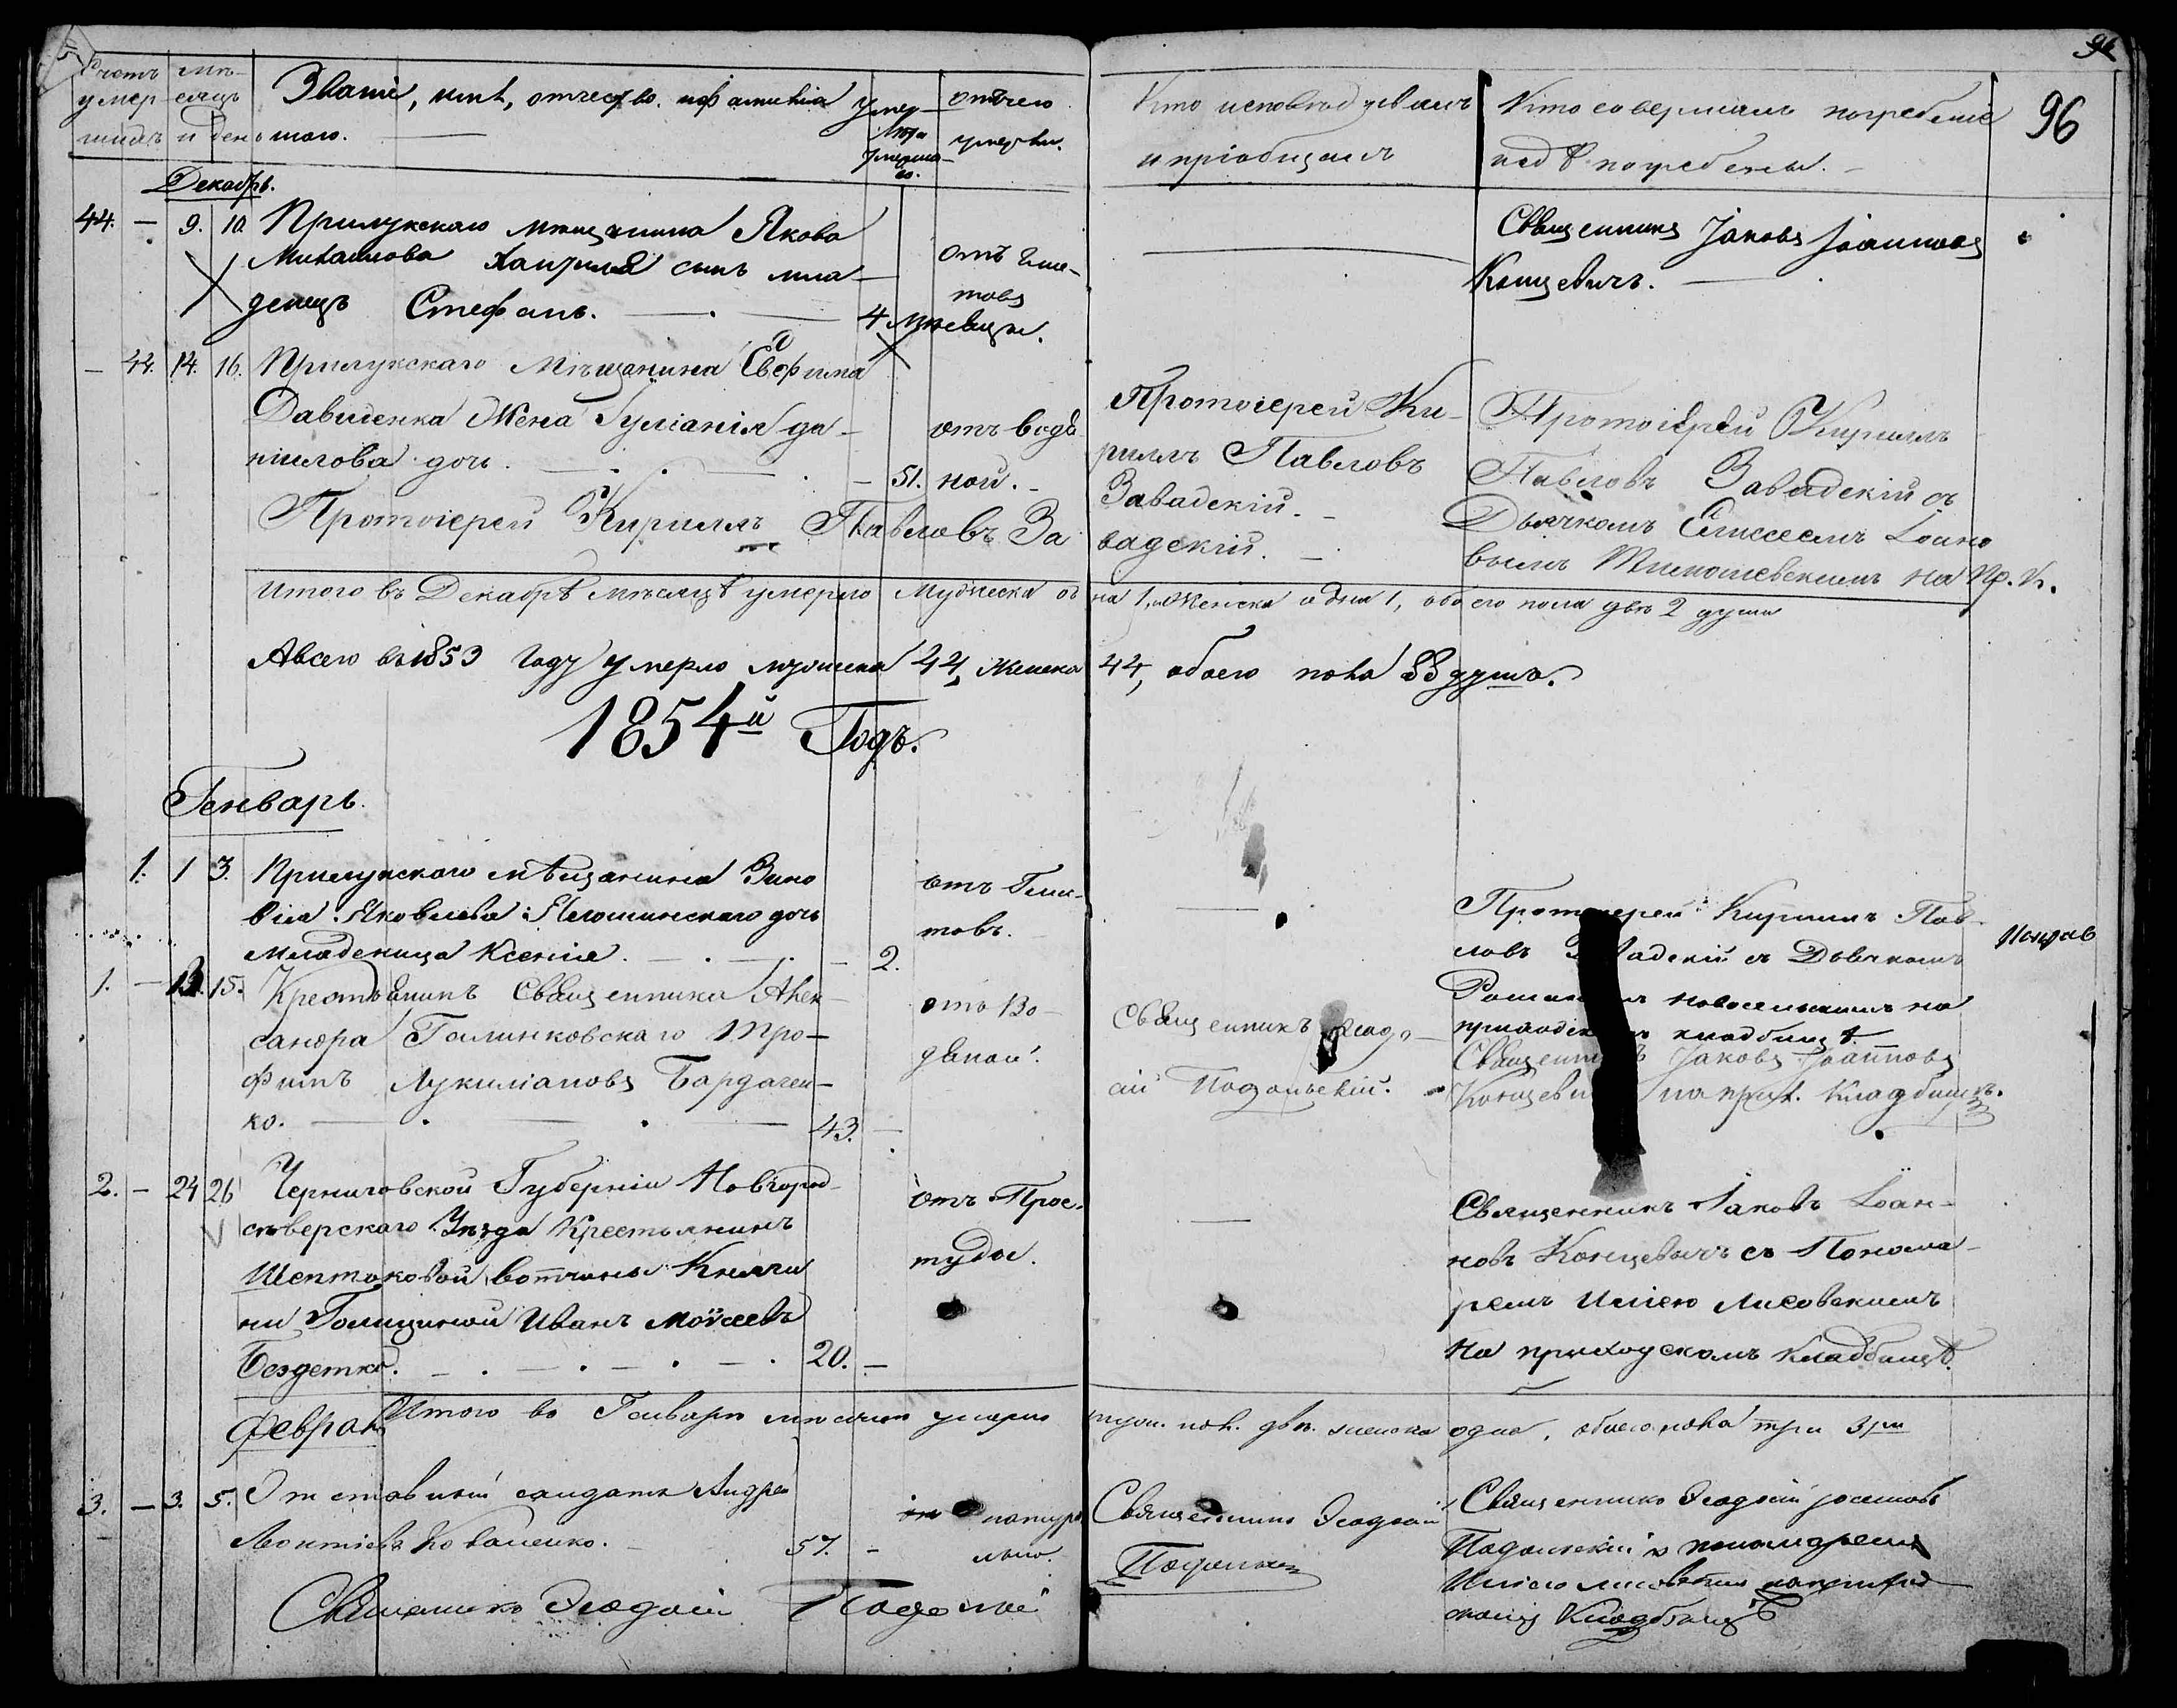 96
Счетъ умер шихъ
мѣ- сяцъ и день
Званіе, имя, отчество и фамилія
того.
отъ чего умерли.
Кто исповѣдувалъ
и пріобщалъ
Кто совершалъ погребеніе
и гдѣ погребены.
96
Декабрь.
44. — 9. 10. Прилукскаго мѣщанина Якова
Михайлова сынъ мла-
денецъ Стефанъ. 4. мѣсяцы.
отъ глис-
товъ
Священникъ Іаковъ Іоанновъ
Концевичъ.
— 44. 14. 16. Прилукскаго Мѣщанина Евфима
Давиденка Жена Іуліанія да-
ніилова дочь. — 51.
отъ водя
ной.
Протоіерей Ки-
риллъ Павловъ
Завадскій.
Протоіерей Кириллъ
Павловъ Завадскій съ
Дьячкомъ Елисеемъ Іоанно
вымъ на пр. к.
Протоіерей Кириллъ Павловъ За
вадскій.
Итого въ Декабрѣ мѣсяцѣ умерло Мужеска одна 1, Женска одна 1, обоего пола двѣ 2 души
А всего въ 1853 году умерло мужеска 44, женска 44, обоего пола 88 душъ.
1854й Годъ.
Генварь.
1. 1 3. Прилукскаго мѣщанина Зино
вія Яковлева дочь
Младеница Ксенія. — 2.
отъ Глис-
товъ.
Протоіерей Кириллъ Пав-
ловъ Завадскій съ Дьячкомъ
Романомъ Новосельскимъ на
приходскомъ кладбищѣ.
1. — 13. 15. Крестьянинъ Священника Алек-
сандра Галинковскаго Тро-
фимъ Лукиліановъ Бардачен-
ко. 43. —
отъ Во-
дяной.
Священникъ Ѳеодо-
сій Подольскій.
Священникъ Іаковъ Іоанновъ
Концевичъ на прих. кладбищѣ.
2. — 24 26 Черниговской Губерніи Новгород-
сѣверскаго Уѣзда Крестьянинъ
Шептаковой вотчины Княги
ни Голицыной Иванъ Моѵсеевъ
Бездетко. 20. —
отъ Прос-
туды.
Священникъ Іаковъ Іоан-
новъ Концевичъ съ Понома-
ремъ Иліею Лисовскимъ
на приходскомъ кладбищѣ.
Итого въ Генварѣ мѣсяцѣ умерло муж. пол. двѣ. женска одна, обоего пола три 3ри
Феврал
3. — 3. 5. Отставный солдатъ Андрей
Леонтіевъ Коваленко. 57. —
натура
льно.
Священникъ Ѳеодосій
Подольскій
Священникъ Ѳеодосій
Подольскій съ пономаремъ
Иліею Лисовскимъ на приход
скомъ Кладбищѣ
Священникъ Ѳеодосій Подольскій